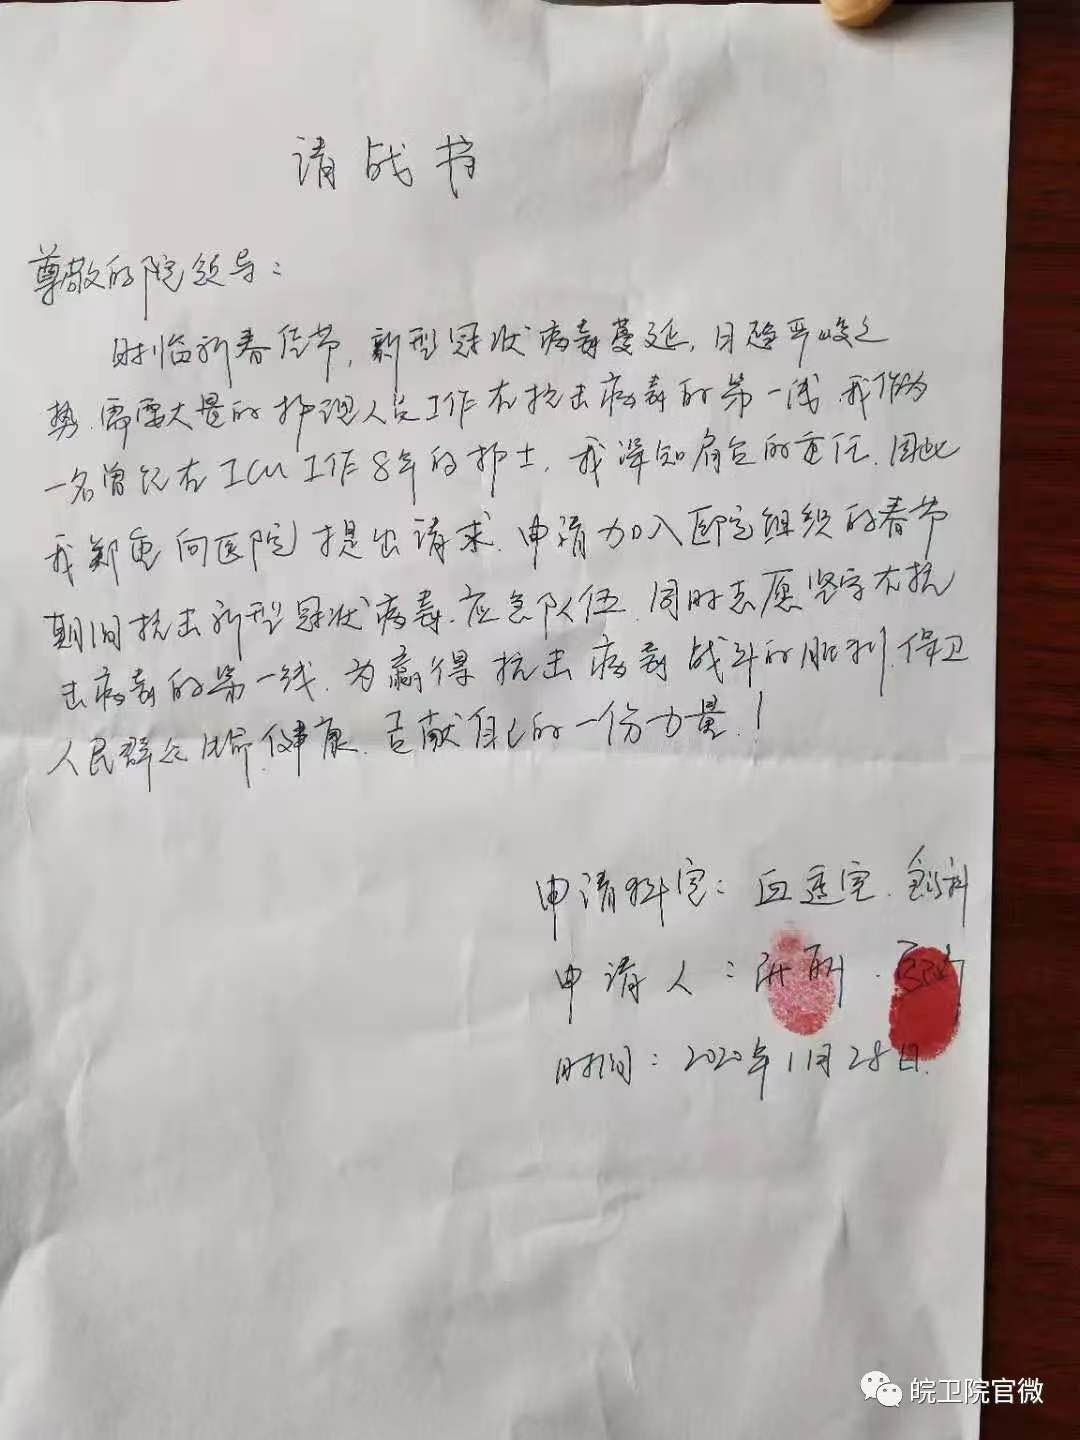 请战书
尊敬的院领导：
时临新春佳节，新型冠状病毒蔓延，日趋严峻之
势，需要大量的护理人员工作在抗击病毒的第一线，我作为
一名曾经在ICU工作8年的护士，我深知肩负的重任，因此
我郑重向医院提出请求，申请加入医院组织的春节
期间抗击新型冠状病毒应急队伍，同时志愿坚守在抗
击病毒的第一线，为赢得抗击病毒战斗的胜利，保卫
人民群众健康，贡献自己的一份力量！
申请科室：血透室、
申请人：
时间：2020年1月28日
皖卫院官微